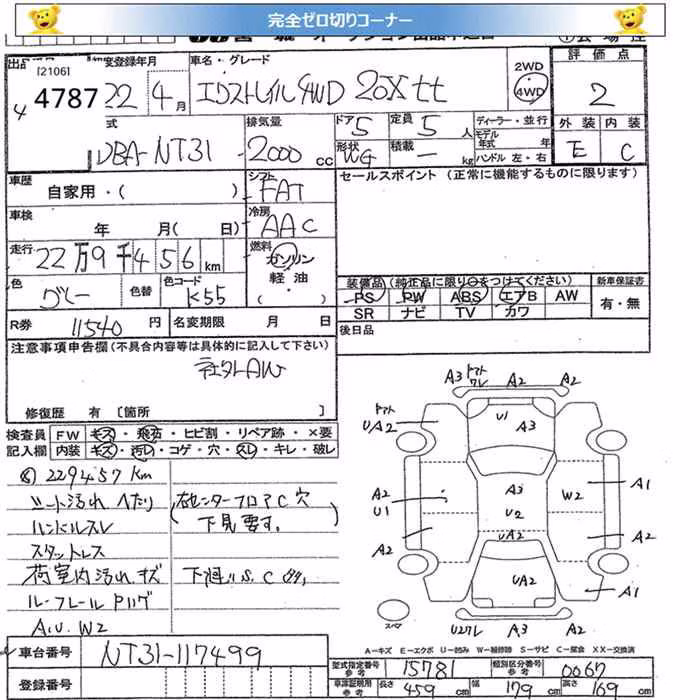 完全ゼロ切りコーナー
[2106]
4787
初度登録年月
22年4月
車名・グレード
エクストレイル 4WD 20Xtt
2WD
4WD
評価点
2
DBA-NT31
排気量
2000 cc
ドア 5
定員 5 人
形状 WG
積載 — kg
ディーラー・並行
モデル年式 年式
ハンドル 左・右
外装 内装
E C
車歴
自家用・( )
シフト FAT
冷房 AAC
セールスポイント (正常に機能するものに限ります)
車検 年 月( 日)
走行 22万9千456 km
燃料
ガソリン
軽・油
色 グレー
色替
色コード K55
装備品 (純正品に限り○をつけてください)
新車保証書
PS PW ABS エアB AW
有・無
SR ナビ TV カワ
R券 11540 円
名変期限 月 日
後日品
注意事項申告欄 (不具合内容等は具体的に記入して下さい)
社外AW
修復歴 有 [箇所 ]
検査員記入欄
FW キズ・飛石・ヒビ割・リペア跡・×要
内装 キズ・汚レ・コゲ・穴・スレ・キレ・破レ
229457 km
シート汚れ ヘたり
ハンドルスレ
スタットレス
荷室内汚れ キズ
ルーフレール
A.U.W2
右センターフロアC穴
下見要す。
下廻りS.C
A3 A2 A2
UA2 U1 A3
A2 U1 A3 W2 A1
U2
A2 UA2 A2
UA2 A1
スペア A3 A2
A-キズ E-エクボ U-凹み W-補修跡 S-サビ C-腐食 XX-交換済
車台番号 NT31-117499
型式指定番号 参考 15781
類別区分番号 参考 0067
登録番号
車庫証明用 参考 長さ 459 cm 幅 179 cm 高さ 169 cm